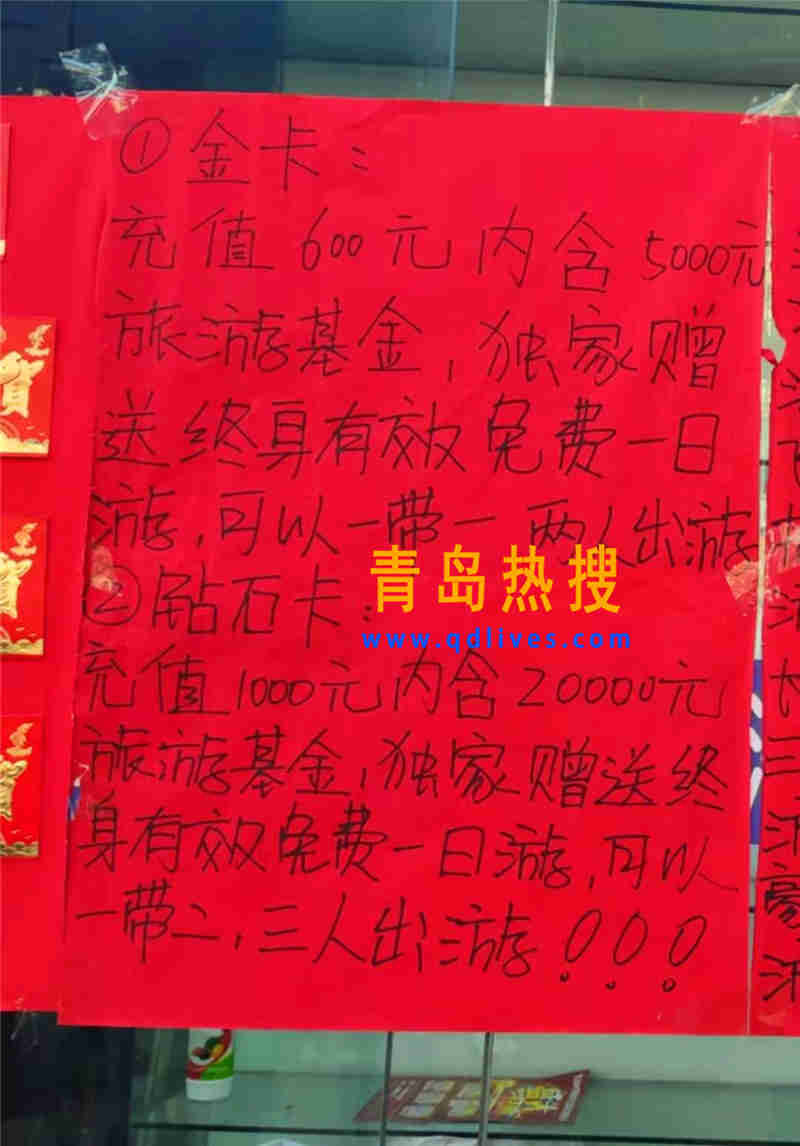 ①金卡：
充值600元内含5000元
旅游基金，独家赠
送终身有效免费一日
游，可以一带一 两人出游
青岛热搜
②钻石卡：
www.qdlives.com
充值1000元内含20000元
旅游基金，独家赠送终
身有效免费一日游，可以
一带二，三人出游！！！